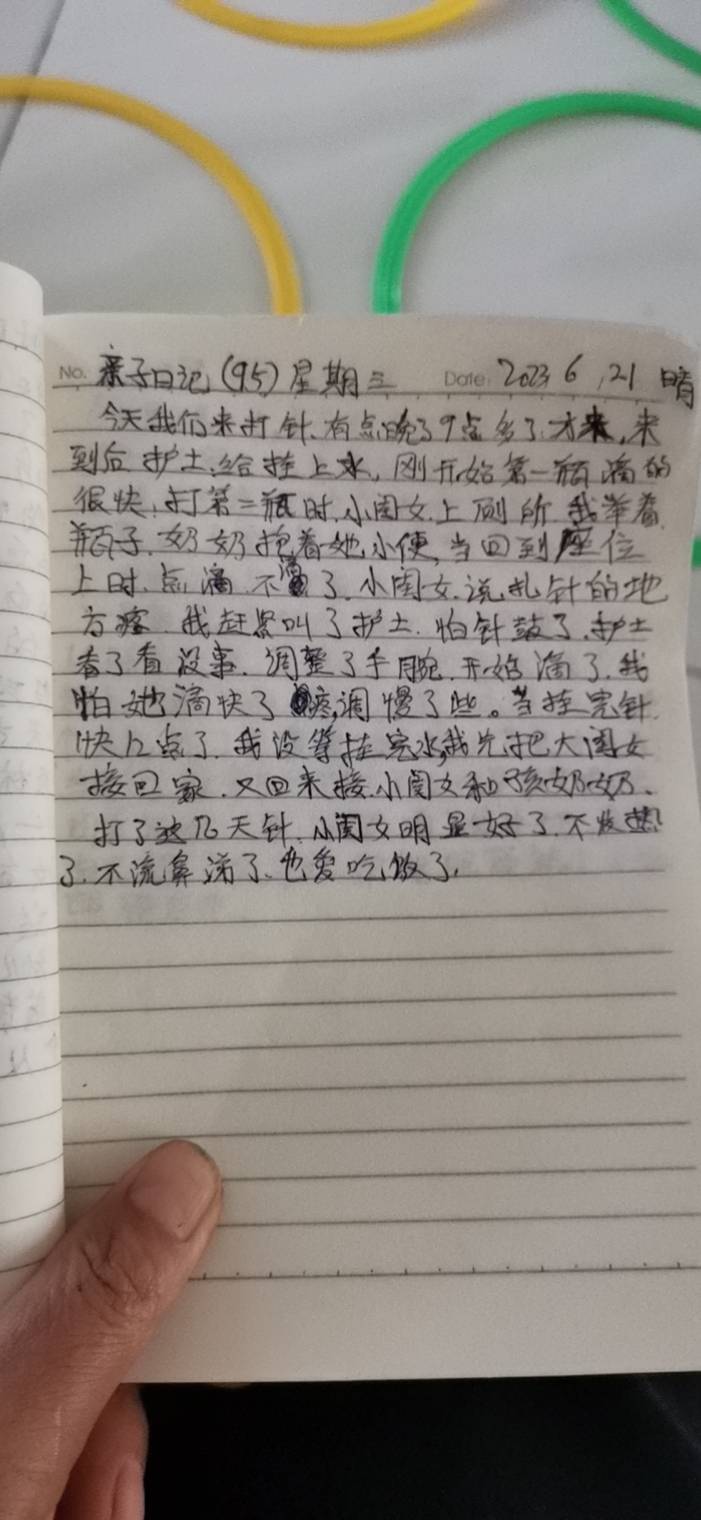 No. 亲子日记(95)星期三 Date: 2023 6, 21 晴
今天我们来打针、有点晚了9点多了.才来,来
到后护士.给挂上水,刚开始第一瓶滴的
很快,打第二瓶时,小闺女.上厕所.我举着
瓶子.奶奶抱着她,小便,当回到座位
上时.点滴.不滴了.小闺女.说.扎针的地
方疼.我赶紧叫了护士.怕针鼓了.护士
看了看没事.调整了手腕.开始滴了.我
怕她滴快了疼,调慢了些。当挂完针
快12点了.我没等挂完水,我先把大闺女
接回家.又回来接.小闺女和孩奶奶.
打了这几天针.小闺女明显好了.不发热
了.不流鼻涕了.也爱吃饭了.